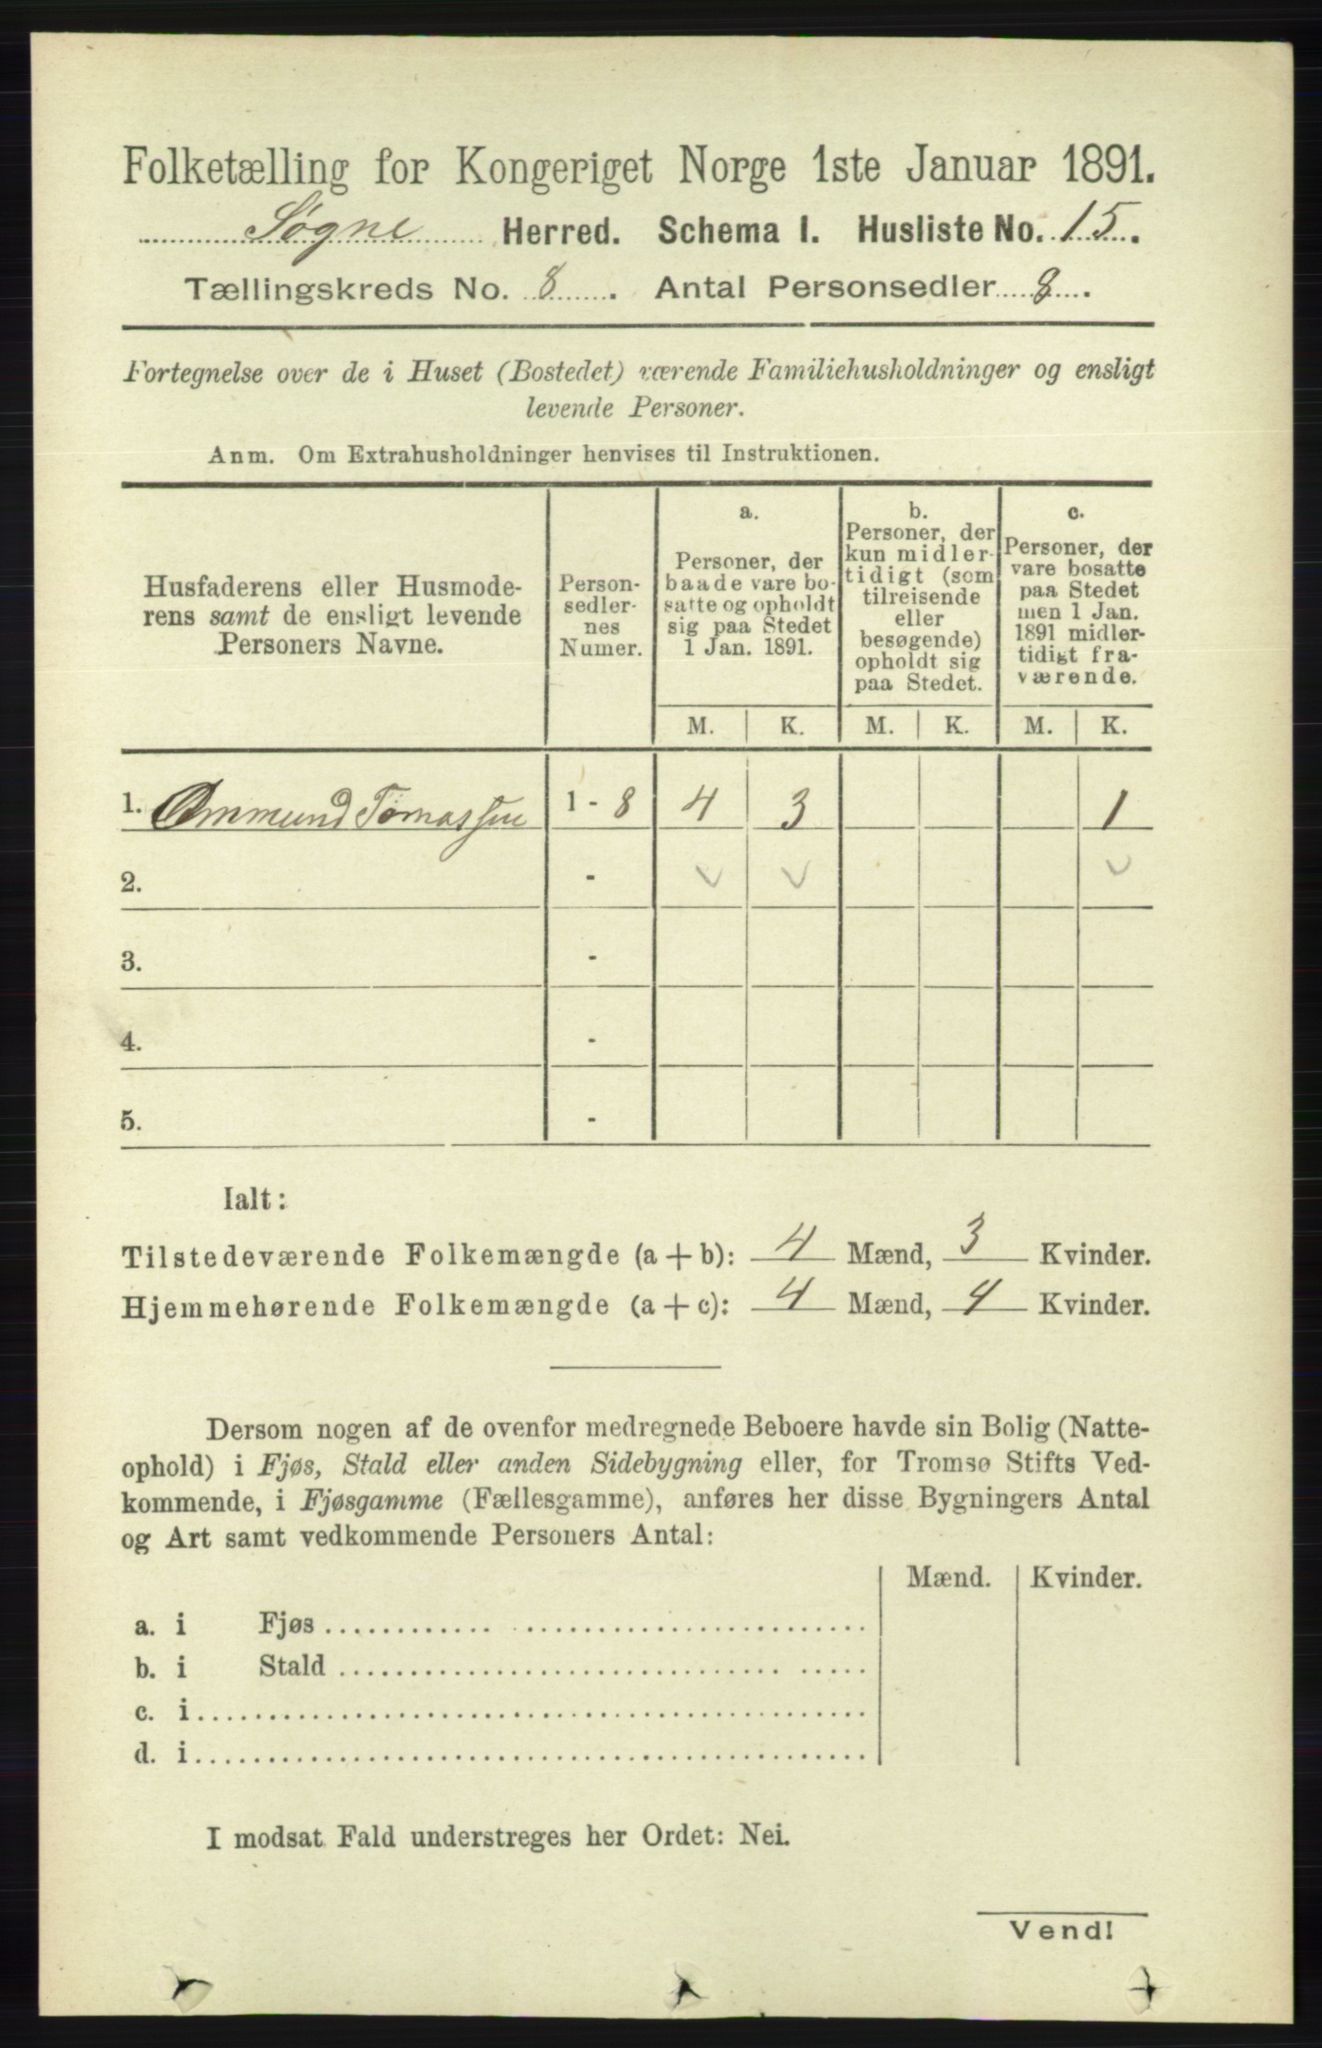 Folketælling for Kongeriget Norge 1ste Januar 1891.
Søgne Herred. Schema I. Husliste No. 15.
Tællingskreds No. 8. Antal Personsedler 8.
Fortegnelse over de i Huset (Bostedet) værende Familiehusholdninger og ensligt
levende Personer.
Anm. Om Extrahusholdninger henvises til Instruktionen.
Husfaderens eller Husmode-
rens samt de ensligt levende
Personers Navne.
Person-
sedler-
nes
Numer.
a.
Personer, der
baade vare bo-
satte og opholdt
sig paa Stedet
1 Jan. 1891.
b.
Personer, der
kun midler-
tidigt (som
tilreisende
eller
besøgende)
opholdt sig
paa Stedet.
c.
Personer, der
vare bosatte
paa Stedet
men 1 Jan.
1891 midler-
tidigt fra-
værende.
M. K. M. K. M. K.
1. Ommund Tomassen 1 - 8 4 3 1
2. -
3. -
4. -
5. -
Ialt:
Tilstedeværende Folkemængde (a + b): 4 Mænd, 3 Kvinder.
Hjemmehørende Folkemængde (a + c): 4 Mænd, 4 Kvinder.
Dersom nogen af de ovenfor medregnede Beboere havde sin Bolig (Natte-
ophold) i Fjøs, Stald eller anden Sidebygning eller, for Tromsø Stifts Ved-
kommende, i Fjøsgamme (Fællesgamme), anføres her disse Bygningers Antal
og Art samt vedkommende Personers Antal:
Mænd. Kvinder.
a. i Fjøs
b. i Stald
c. i
d. i
I modsat Fald understreges her Ordet: Nei.
Vend!